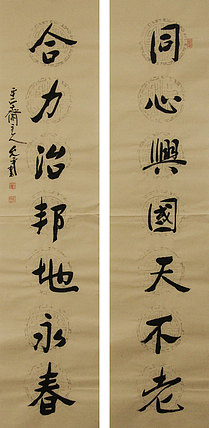 同心興國天不老
合力治邦地永春